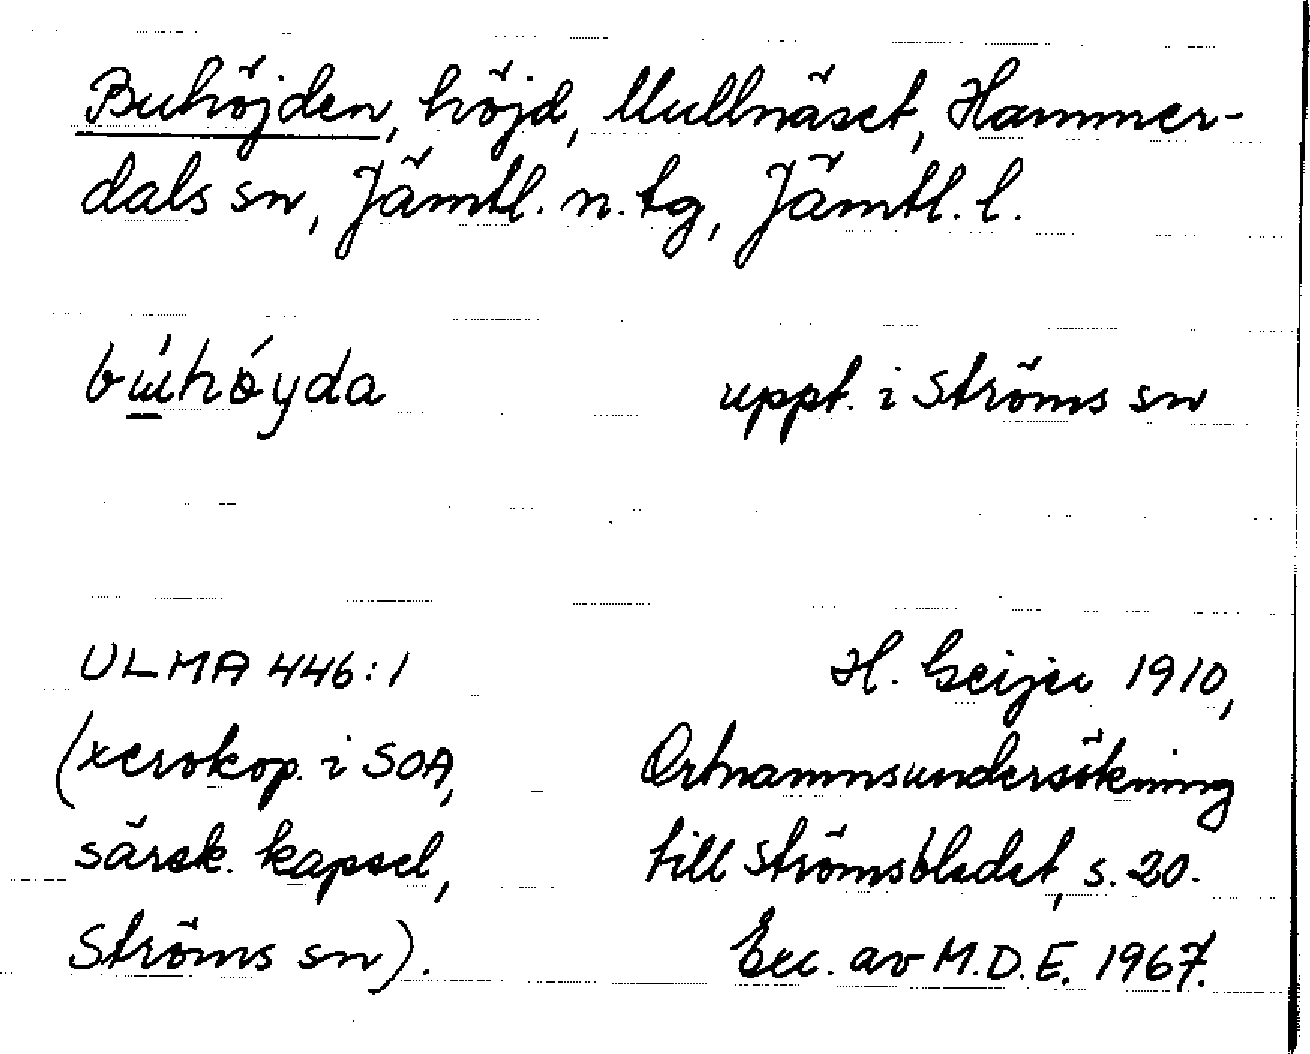 Buhöjden, höjd, Mullnäset, Hammer-
dals sn, Jämtl. n. tg, Jämtl. l.
uppt. i Ströms sn
ULMA 446:1
H. Geijer 1910,
(xerokop. i SOA,
Ortnamnsundersökning
särsk. kapsel,
till Strömsbladet, s. 20.
Ströms sn).
Exc. av M.D.E. 1967.